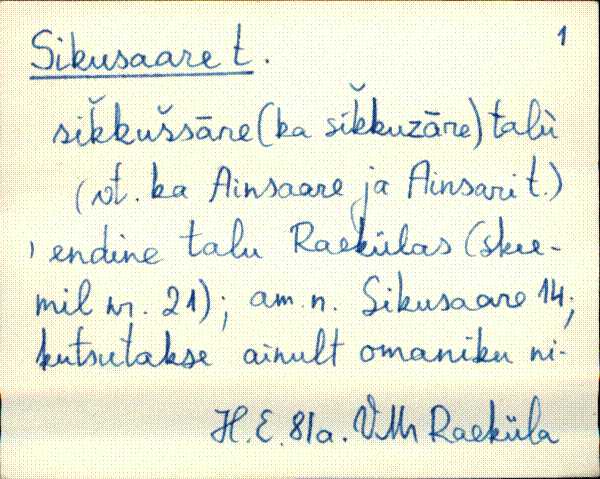 Sikusaare t. 1
sik̆kuššāre (ka sik̆kuzāre) talù
(vt. ka Ainsaare ja Ainsari t.)
, endine talu Raekülas (skee-
mil nr. 21); am. n. Sikusaare 14;
kutsutakse ainult omaniku ni-
H.E. 81a. VMr Raeküla